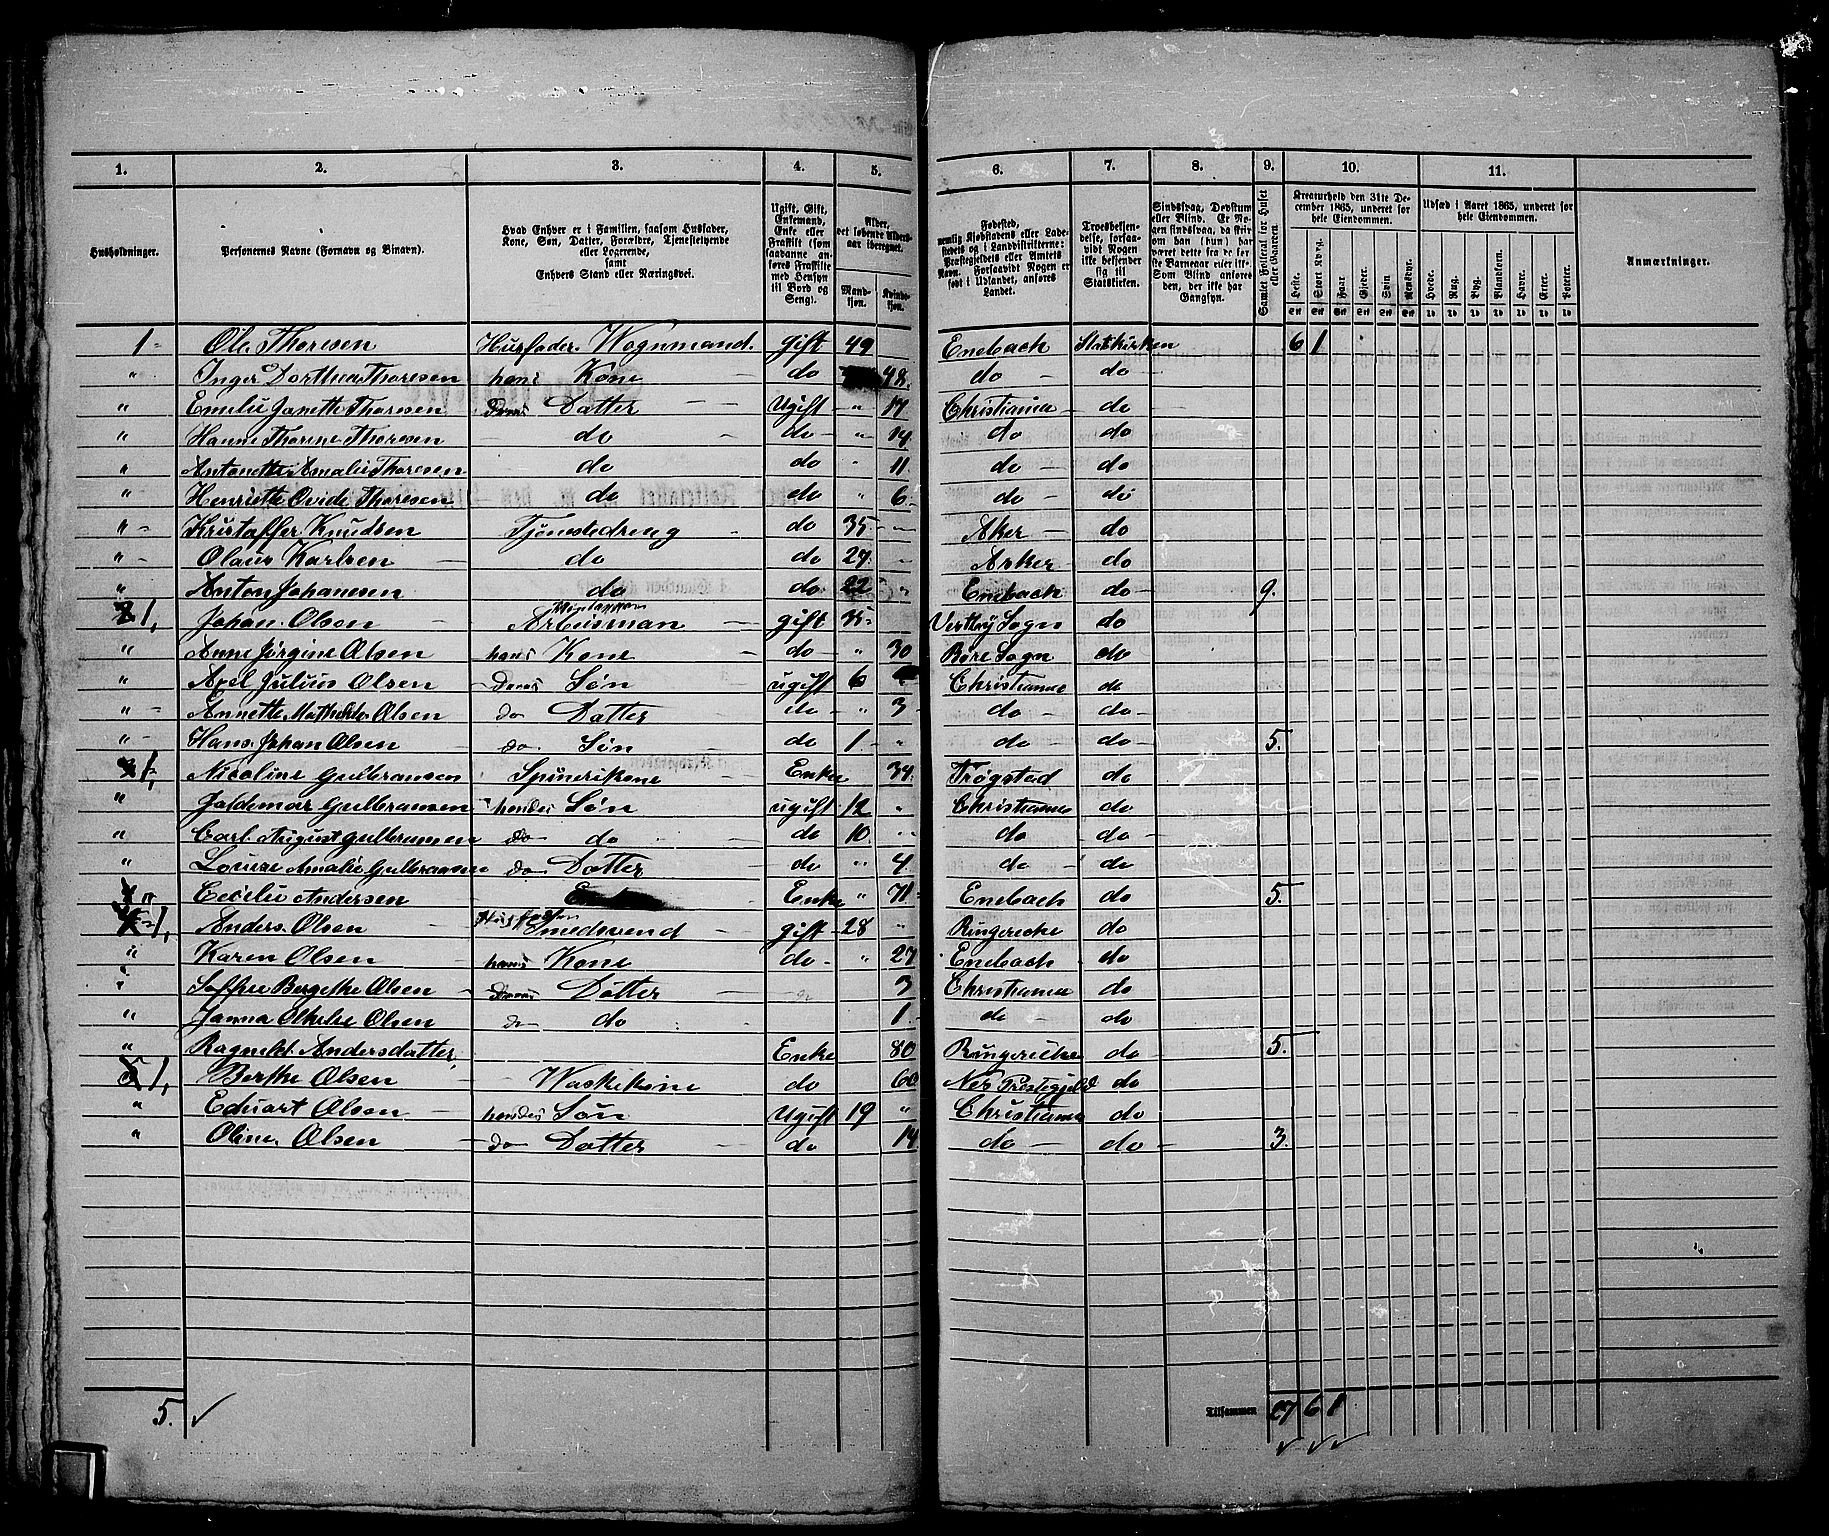 1. 2. 3. 4. 5. 6. 7. 8. 9. 10. 11.
Husholdninger.
Personernes Navne (Fornavn og Binavn).
Hvad Enhver er i Familien, saasom Husfader, Kone, Søn, Datter, Forældre, Tjenestetyende eller Logerende, samt Enhvers Stand eller Næringsvei.
Ugift, Gift, Enkemand, Enke eller Fraskilt (som saadanne anføres Fraskilte med Hensyn til Bord og Seng).
Alder, det løbende Alders-aar iberegnet.
Mand-kjøn. Kvinde-kjøn.
Fødested, nemlig Kjøbstadens eller Ladestedets og i Landdistrikterne: Præstegjeldets eller Amtets Navn. Forsaavidt Nogen er født i Udlandet, anføres Landet.
Troesbekjendelse, forsaavidt Nogen ikke bekjender sig til Statskirken.
Sindssvag, Døvstum eller Blind. Er Nogen sindssvag, da skrives om han (hun) har været dette fra de første Barneaar eller ikke. Som Blind anføres den, der ikke har Gangsyn.
Samlet Folketal for Huset eller Gaarden.
Kreaturhold den 31te December 1865, underet for hele Eiendommen.
Heste. Stort Kvæg. Faar. Gjeder. Svin. Rensdyr.
Udsæd i Aaret 1865, underet for hele Eiendommen.
Hvede. Rug. Byg. Blandkorn. Havre. Erter. Poteter.
Anmærkninger.
1 - Ole Thoresen Husfader Wognmand. gift 49 Enebach Statskirken 6 1
" Inger Dorthea Thoresen hans Kone do 48. do do
" Emelie Janette Thoresen Deres Datter Ugift " 17 Christiania do
" Hanne Thorine Thoresen do do " 14 do do
" Antonette Amalie Thoresen do do " 11 do do
" Henriette Ovide Thoresen do do " 6 do do
" Kristaffer Knudsen Tjenestedreng do 35 Aker do
" Olaus Karlsen do do 27 Asker do
" Anton Johanesen do do 22 " Enebach do 9.
1, Johan Olsen Arbeisman gift 35 Vestby Sogn do
" Anne Jørgine Olsen hans Kone do " 30 Sogn do
" Axel Julius Olsen Deres Søn ugift 6 Christiania do
" Annette Mathilde Olsen do Datter do " 3 do do
" Hans Johan Olsen do Søn do 1 " do do 5.
1, Nicoline Gulbransen Spinerikone Enke 34. Trøgstad do
" Gulbransen hendes Søn ugift 12 " Christiania do
" Carl August Gulbransen do do do 10 " do do
" Louise Amalie Gulbransen do Datter do " 4. do do
" Cecilie Andersen Enke " 71 Enebach do 5.
1, Anders Olsen Husfader Smedsvend gift 28 Ringerike do
" Karen Olsen hans Kone do " 27 Enebach do
" Bergethe Olsen Deres Datter 3 Christiania do
" Olsen do do 1 do do
" Ragnild Andersdatter, Enke 80 Ringerike do 5.
1, Berthe Olsen Waskekone do 60 Nes Prestegjeld do
" Eduart Olsen hendes Søn Ugift 19 " Christiania do
" Oline Olsen do Datter do 14 do do 3.
5. ✓ Tilsammen 27 6 1